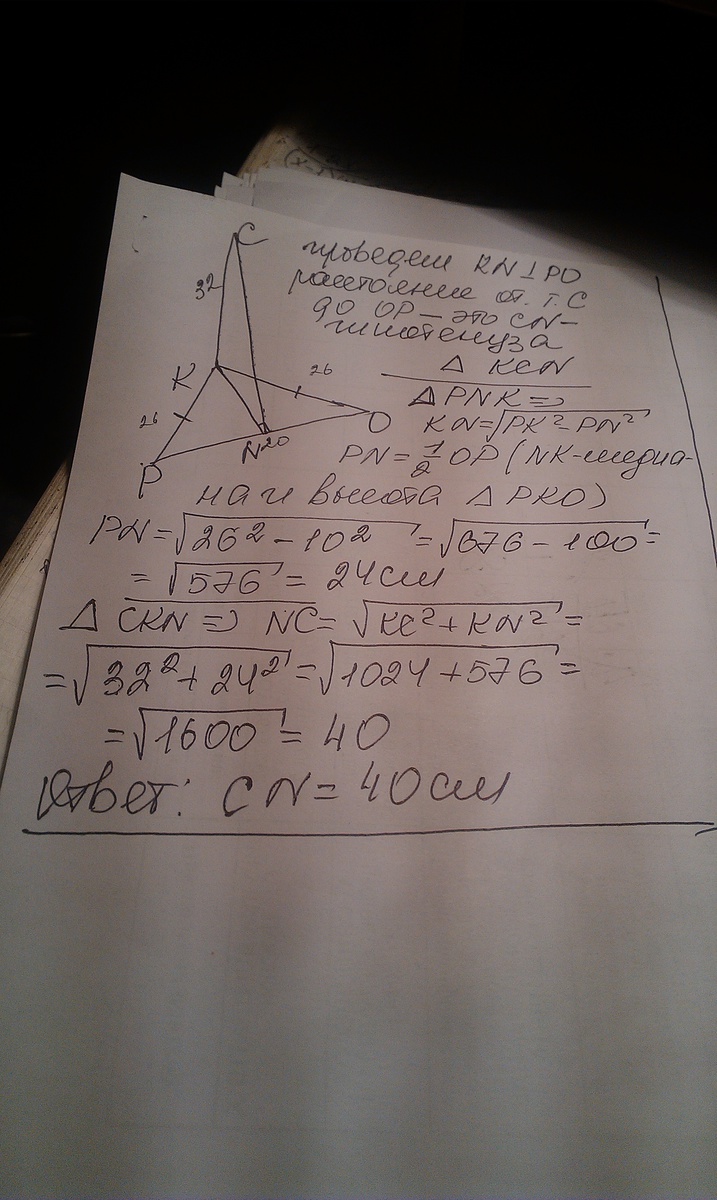 C
32
K
26
26
O
N
20
P
проведем KN⊥PO
расстояние от. т. C
до OP — это CN –
гипотенуза
Δ KCN
Δ PNK =>
KN=√PK²-PN²
PN=1/2 OP (NK-медиа-
на и высота Δ PKO)
PN=√26²-10² =√676-100=
=√576 = 24см
Δ CKN => NC= √KC²+KN² =
=√32²+24² =√1024+576 =
=√1600 = 40
Ответ: CN = 40см